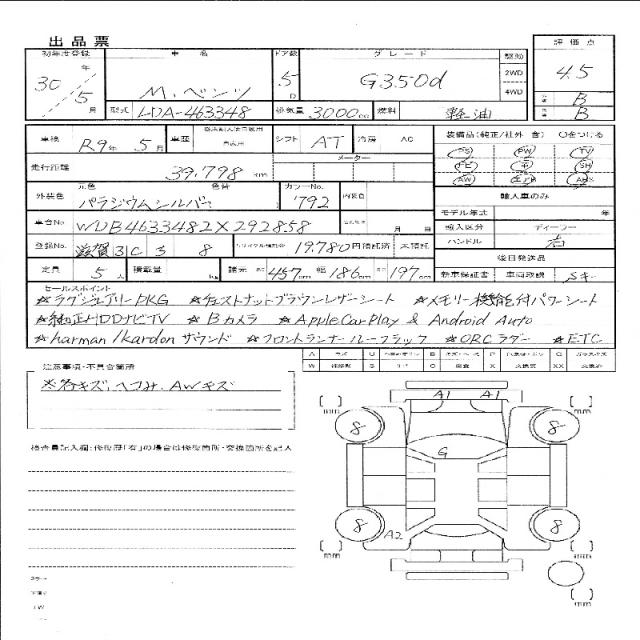 出品票
初年度登録 車名 ドア数 グレード 駆動 評価点
30年 5月 M.ベンツ 5D G350d 2WD 4WD 4.5
型式 LDA-463348 排気量 3000cc 燃料 軽油 B B
車検 R9年 5月 車歴 シフト AT 冷房 AC 装備品(純正/社外 含) ○をつける
走行距離 39,798 km メーター SR PW TV
外装色 元色 パラジウムシルバー 色替 カラーNo. 792 内装色 輸入車のみ
モデル年式 年
車台No WDB4633482X292858 月 日 輸入区分 ディーラー
登録No. 滋賀 3C 5 8 リサイクル預託金 19,780円預託済 未預託 ハンドル 右
後日発送品
定員 5人 積載量 kg 諸元 長さ 457cm 幅 186cm 高さ 197cm 新車保証書 車両取説 Sキー
セールスポイント
☆ラグジュアリーPKG ☆チェストナットブラウンレザーシート ☆メモリー機能付パワーシート
☆純正HDDナビTV ☆Bカメラ ☆Apple CarPlay & Android Auto
☆harman/kardonサウンド ☆フロントランナールーフラック ☆ORCラダー ☆ETC
注意事項・不具合箇所
※各キズ、ヘコみ、AWキズ
検査員記入欄:修復歴「有」の場合は修復箇所・交換箇所を記入
A1 A1
8 8
G
8 8
A2
mm mm
mm mm
mm